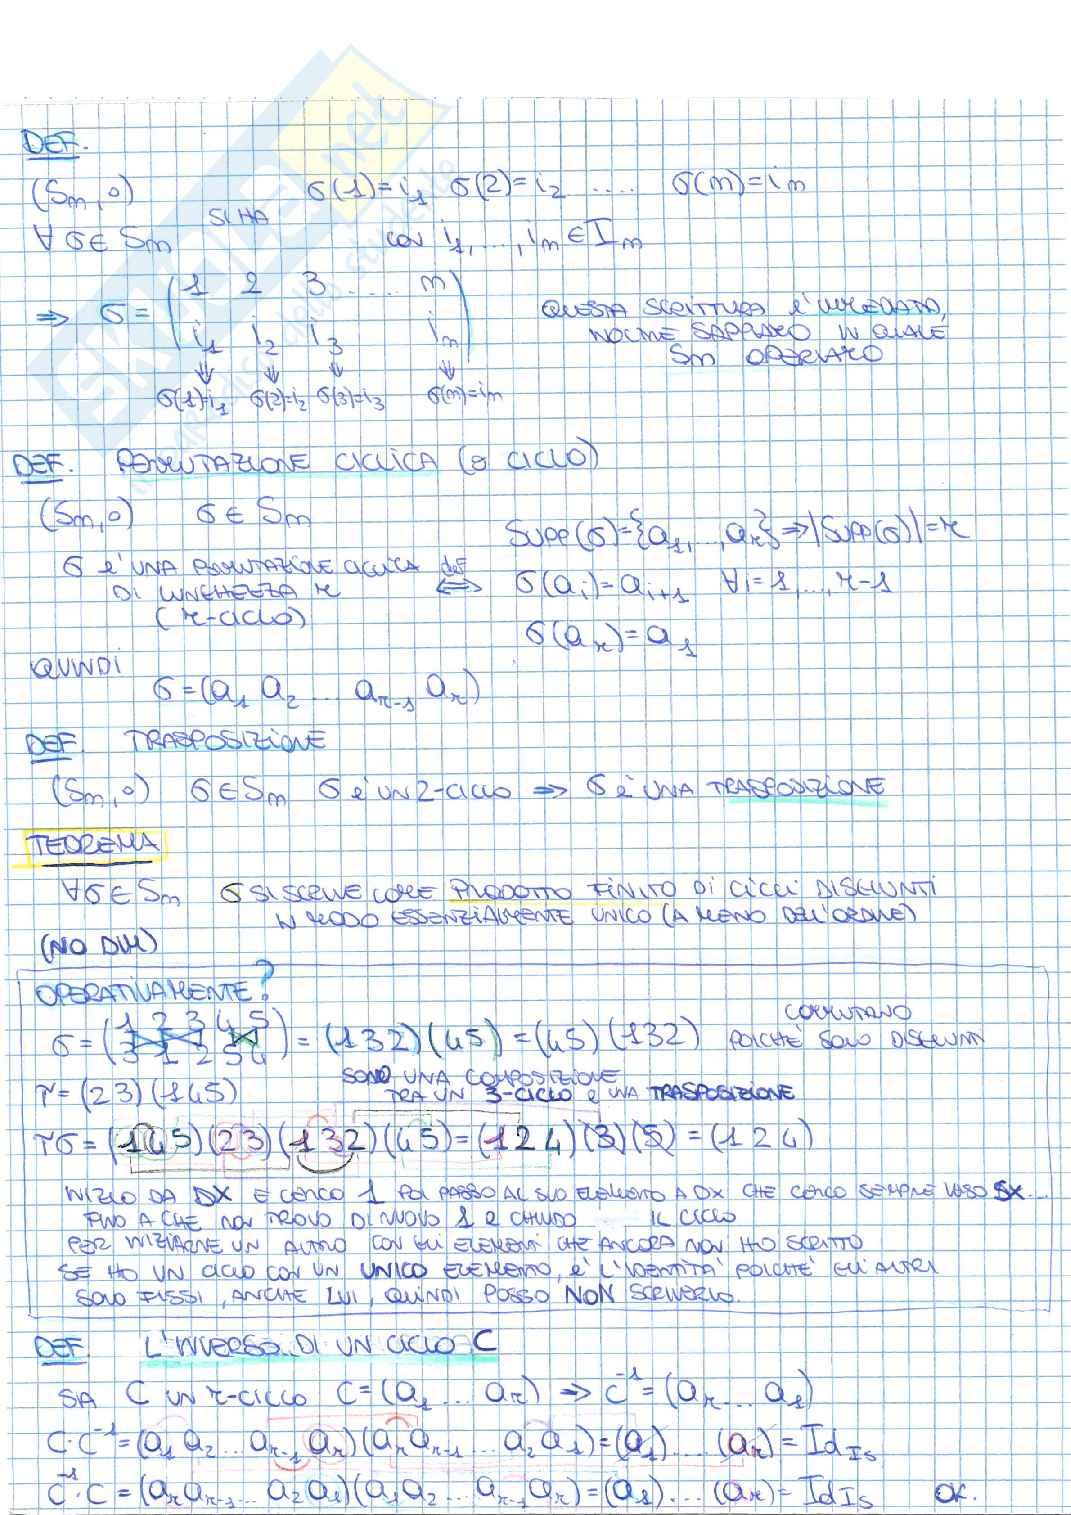 DEF.
(Sm, o) σ(1)=i1 σ(2)=i2 .... σ(m)=im
∀ σ ∈ Sm SI HA con i1,...,im ∈ Im
⇒ σ = (1 2 3 .... m
i1 i2 i3 im)
σ(1)=i1 σ(2)=i2 σ(3)=i3 σ(m)=im
QUESTA SCRITTURA È
NOI SAPPIAMO IN QUALE
Sm OPERIAMO
DEF. PERMUTAZIONE CICLICA (o CICLO)
(Sm, o) σ ∈ Sm
Supp(σ)={a1,...,ar} ⇒ |Supp(σ)|=r
σ è UNA PERMUTAZIONE CICLICA def ⇔ σ(ai)=ai+1 ∀i=1,...,r-1
DI LUNGHEZZA r
(r-CICLO)
σ(ar)=a1
QUINDI
σ=(a1 a2 ... ar-1 ar)
DEF. TRASPOSIZIONE
(Sm, o) σ∈Sm σ è UN 2-CICLO ⇒ σ è UNA TRASPOSIZIONE
TEOREMA
∀σ∈Sm σ SI SCRIVE COME PRODOTTO FINITO DI CICLI DISGIUNTI
IN MODO ESSENZIALMENTE UNICO (A MENO DELL'ORDINE)
(NO DIM)
OPERATIVAMENTE?
σ = (1 2 3 4 5
3 1 2 5 4) = (132)(45) = (45)(132) COMMUTANO
POICHÈ SONO DISGIUNTI
SONO UNA COMPOSIZIONE
TRA UN 3-CICLO E UNA TRASPOSIZIONE
τ=(23)(145)
τσ = (145)(23)(132)(45) = (124)(3)(5) = (124)
INIZIO DA DX E CERCO 1 POI PASSO AL SUO ELEMENTO A DX CHE CERCO SEMPRE VERSO SX...
FINO A CHE NON TROVO DI NUOVO 1 E CHIUDO IL CICLO
PER INIZIARNE UN ALTRO CON GLI ELEMENTI CHE ANCORA NON HO SCRITTO
SE HO UN CICLO CON UN UNICO ELEMENTO, È L'IDENTITÀ POICHÈ GLI ALTRI
SONO FISSI, ANCHE LUI, QUINDI POSSO NON SCRIVERLO.
DEF. L'INVERSO DI UN CICLO C
SIA C UN r-CICLO C=(a1 ... ar) ⇒ C^-1=(ar ... a1)
C·C^-1=(a1 a2 ... ar-1 ar)(ar ar-1 ... a2 a1)=(a1)....(ar)=Id Is
C^-1·C=(ar ar-1 ... a2 a1)(a1 a2 ... ar-1 ar)=(a1)....(ar)=Id Is OK.